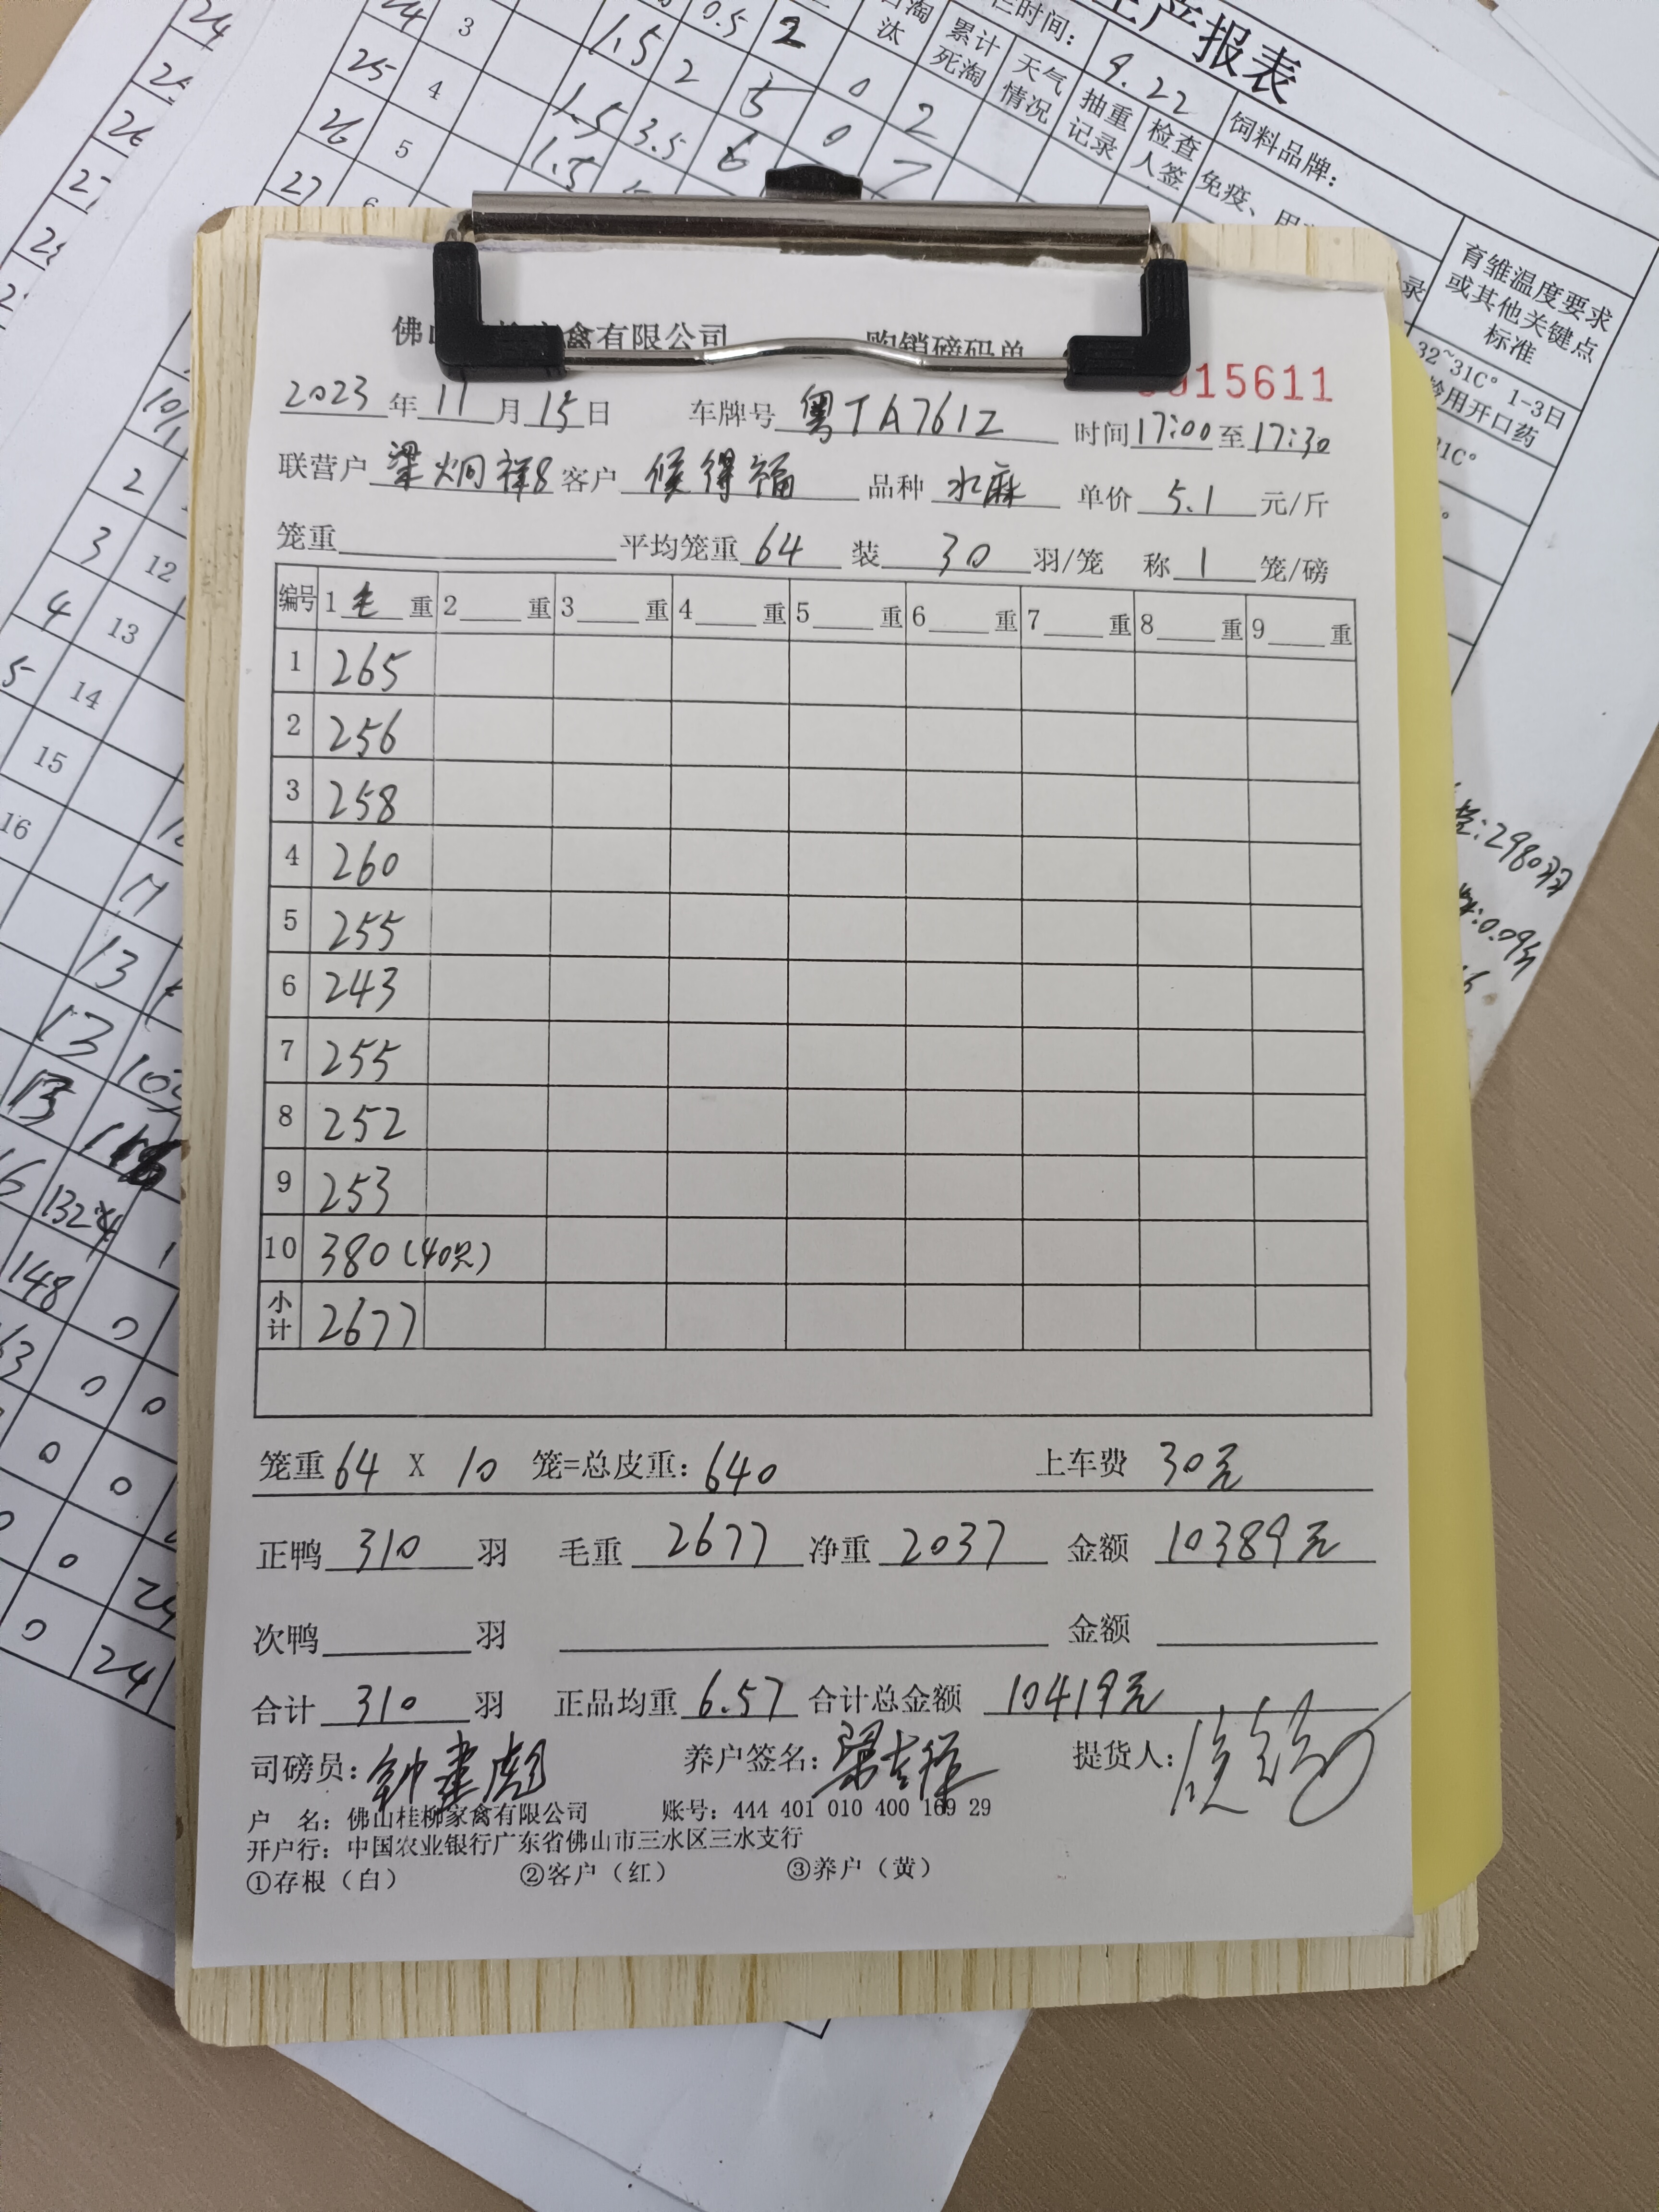 生产报表
栏时间: 9.22 饲料品牌:
累计死淘 天气情况 抽重记录 检查人签
育雏温度要求或其他关键点标准
32~31C° 1-3日
龄用开口药
24 3 1.5 2 5 0 2
25 4 1.5 3.5 6 0 7
26 5 1.5
27 6
佛山 家禽有限公司 购销磅码单
915611
2023 年 11 月 15 日 车牌号 粤TA761Z 时间 17:00 至 17:30
联营户 梁炯祥8 客户 候得福 品种 水麻 单价 5.1 元/斤
笼重 平均笼重 64 装 30 羽/笼 称 1 笼/磅
编号 1 毛 重 2 重 3 重 4 重 5 重 6 重 7 重 8 重 9 重
1 265
2 256
3 258
4 260
5 255
6 243
7 255
8 252
9 253
10 380 (40只)
小计 2677
笼重 64 X 10 笼=总皮重: 640 上车费 30元
正鸭 310 羽 毛重 2677 净重 2037 金额 10389元
次鸭 羽 金额
合计 310 羽 正品均重 6.57 合计总金额 10419元
司磅员: 钟建彪 养户签名: 提货人:
户 名: 佛山桂柳家禽有限公司 账号: 444 401 010 400 169 29
开户行: 中国农业银行广东省佛山市三水区三水支行
①存根(白) ②客户(红) ③养户(黄)
:2980羽
:0.09
2
3 12
4 13
5 14
15
16
17
13
13
148 0
0 0
0 0
0 24
0 24